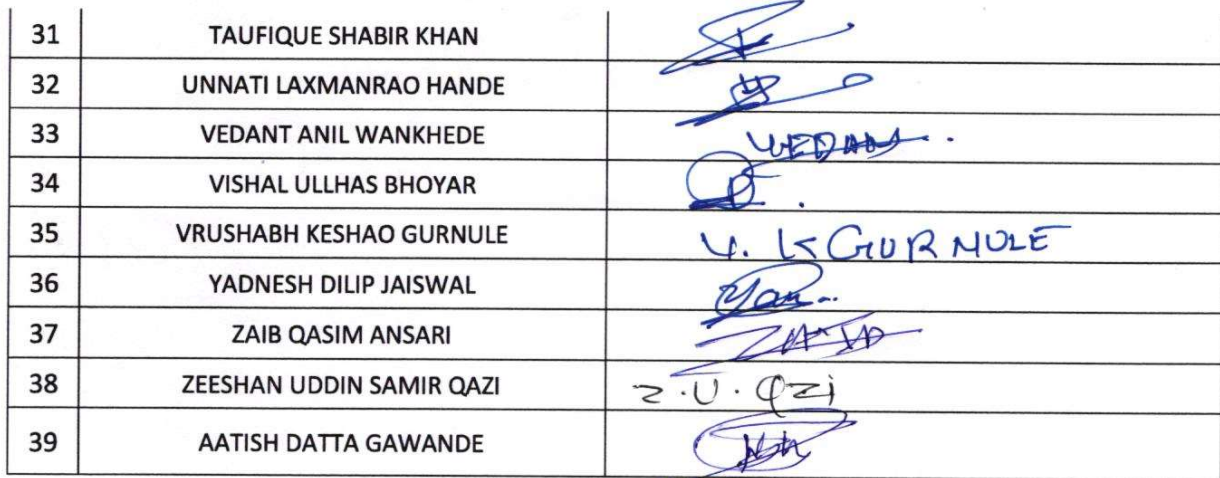 31 TAUFIQUE SHABIR KHAN
32 UNNATI LAXMANRAO HANDE
33 VEDANT ANIL WANKHEDE VEDANT
34 VISHAL ULLHAS BHOYAR
35 VRUSHABH KESHAO GURNULE V. K GURNULE
36 YADNESH DILIP JAISWAL
37 ZAIB QASIM ANSARI ZAIB
38 ZEESHAN UDDIN SAMIR QAZI Z.U.Qzi
39 AATISH DATTA GAWANDE